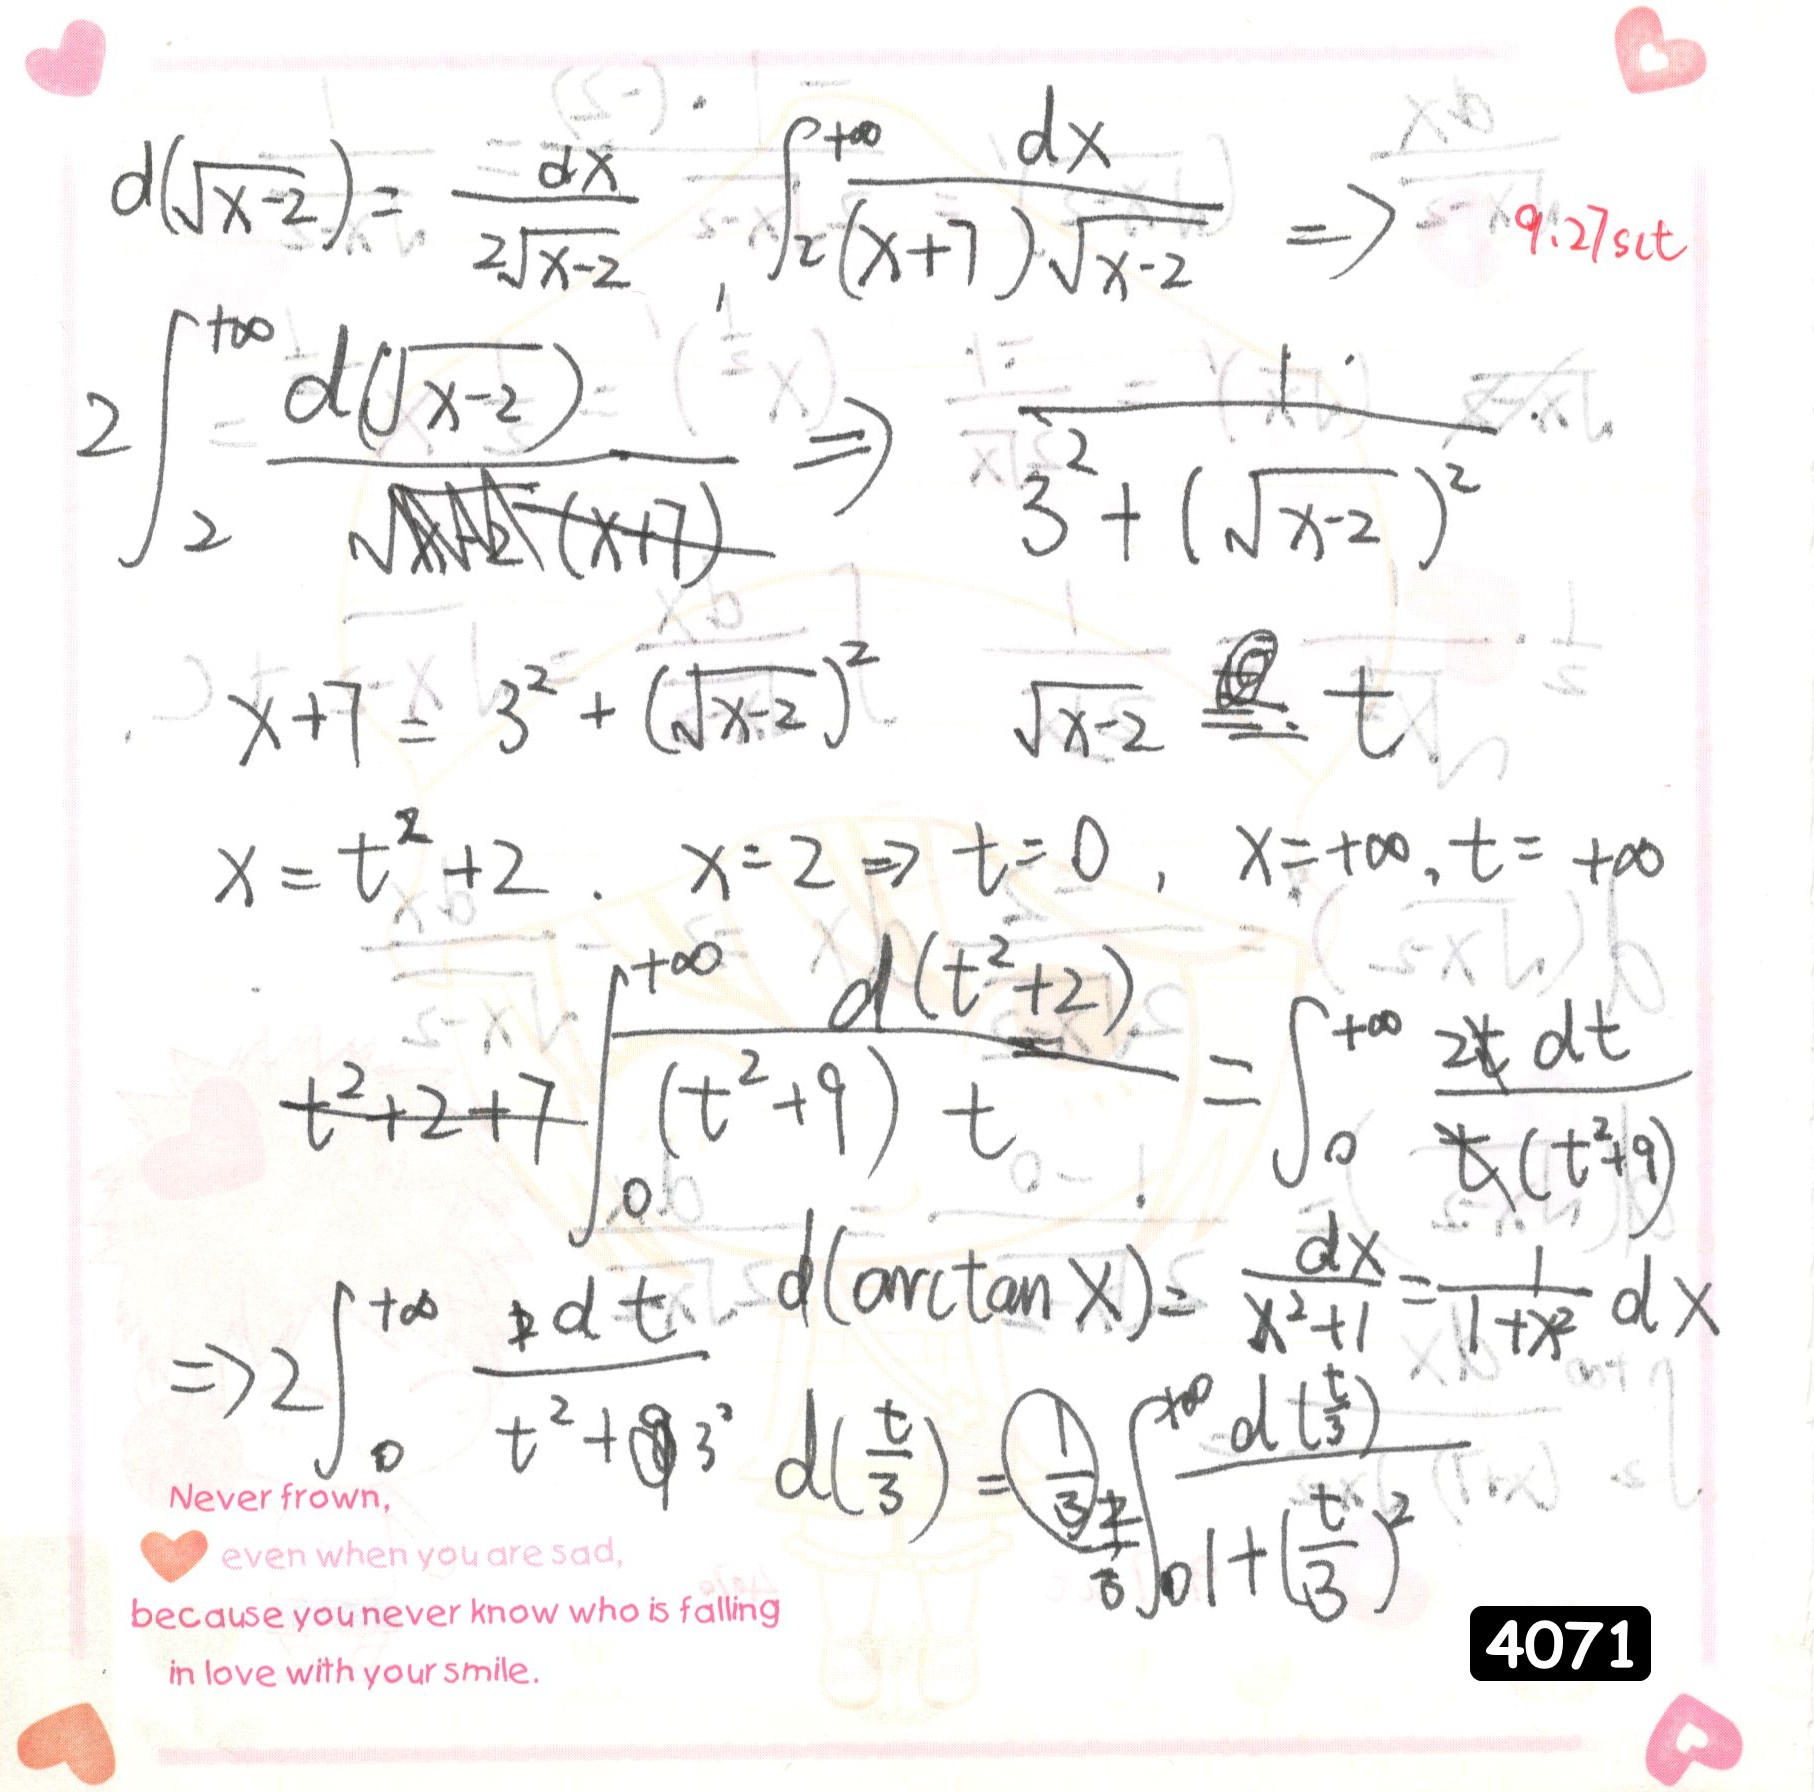 d(√x-2) = dx/(2√x-2), ∫₂^{+∞} dx/((x+7)√x-2) =>
9.27sat
2∫₂^{+∞} d(√x-2)/(√x-2 (x+7)) => 1/(3² + (√x-2)²)
x+7 = 3² + (√x-2)² √x-2 = t
x = t² + 2 . x = 2 => t = 0 , x = +∞, t = +∞
t²+2+7 ∫₀^{+∞} d(t²+2)/((t²+9) t) = ∫₀^{+∞} 2t dt/(t(t²+9))
=> 2∫₀^{+∞} dt/(t²+3²) d(arctan x) = dx/(x²+1) = 1/(1+x²) dx
d(t/3) = 1/3 2/3 ∫₀^{+∞} d(t/3)/(1+(t/3)²)
Never frown,
even when you are sad,
because you never know who is falling
in love with your smile.
4071